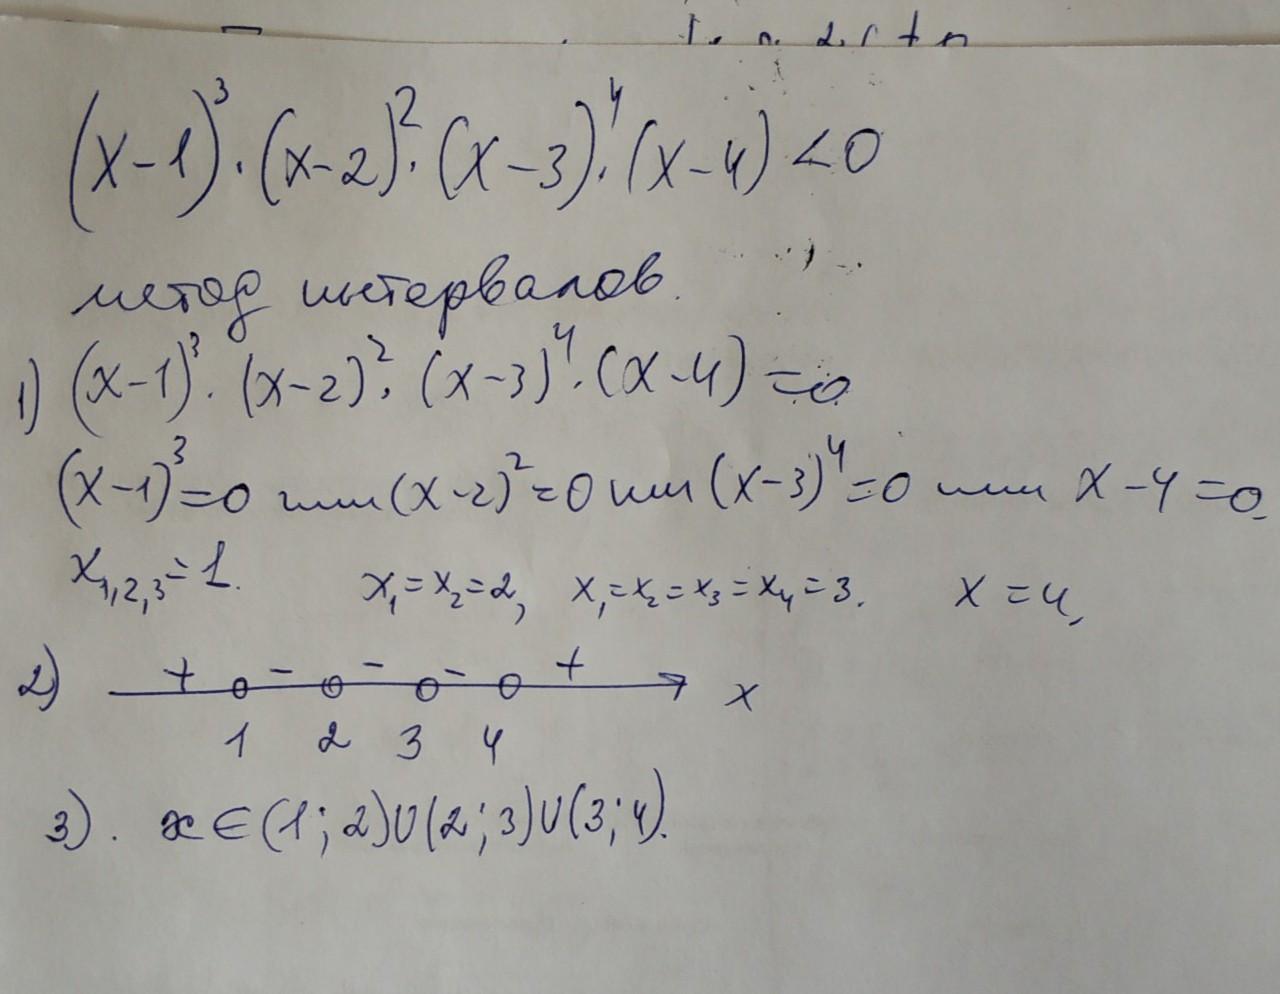 (x-1)³·(x-2)²·(x-3)⁴·(x-4)<0
метод интервалов.
1) (x-1)³·(x-2)²·(x-3)⁴·(x-4)=0
(x-1)³=0 или (x-2)²=0 или (x-3)⁴=0 или x-4=0.
x₁,₂,₃=1. x₁=x₂=2, x₁=x₂=x₃=x₄=3. x=4,
2) + - - - + x
1 2 3 4
3). x∈(1;2)∪(2;3)∪(3;4).